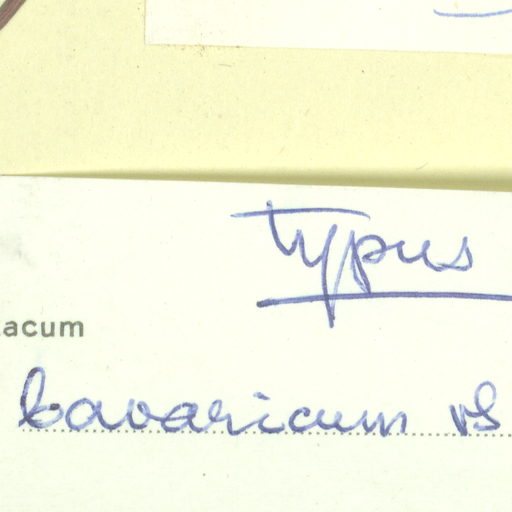 typus
acum
bavaricum